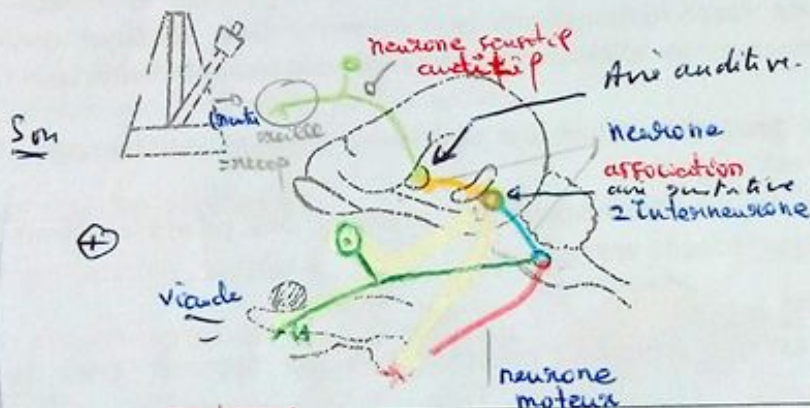 neurone sensitif
auditif
Aire auditive.
Son
oreille
= récep
neurone
association
aire gustative
2 Interneurone
+
viande
neurone
moteur